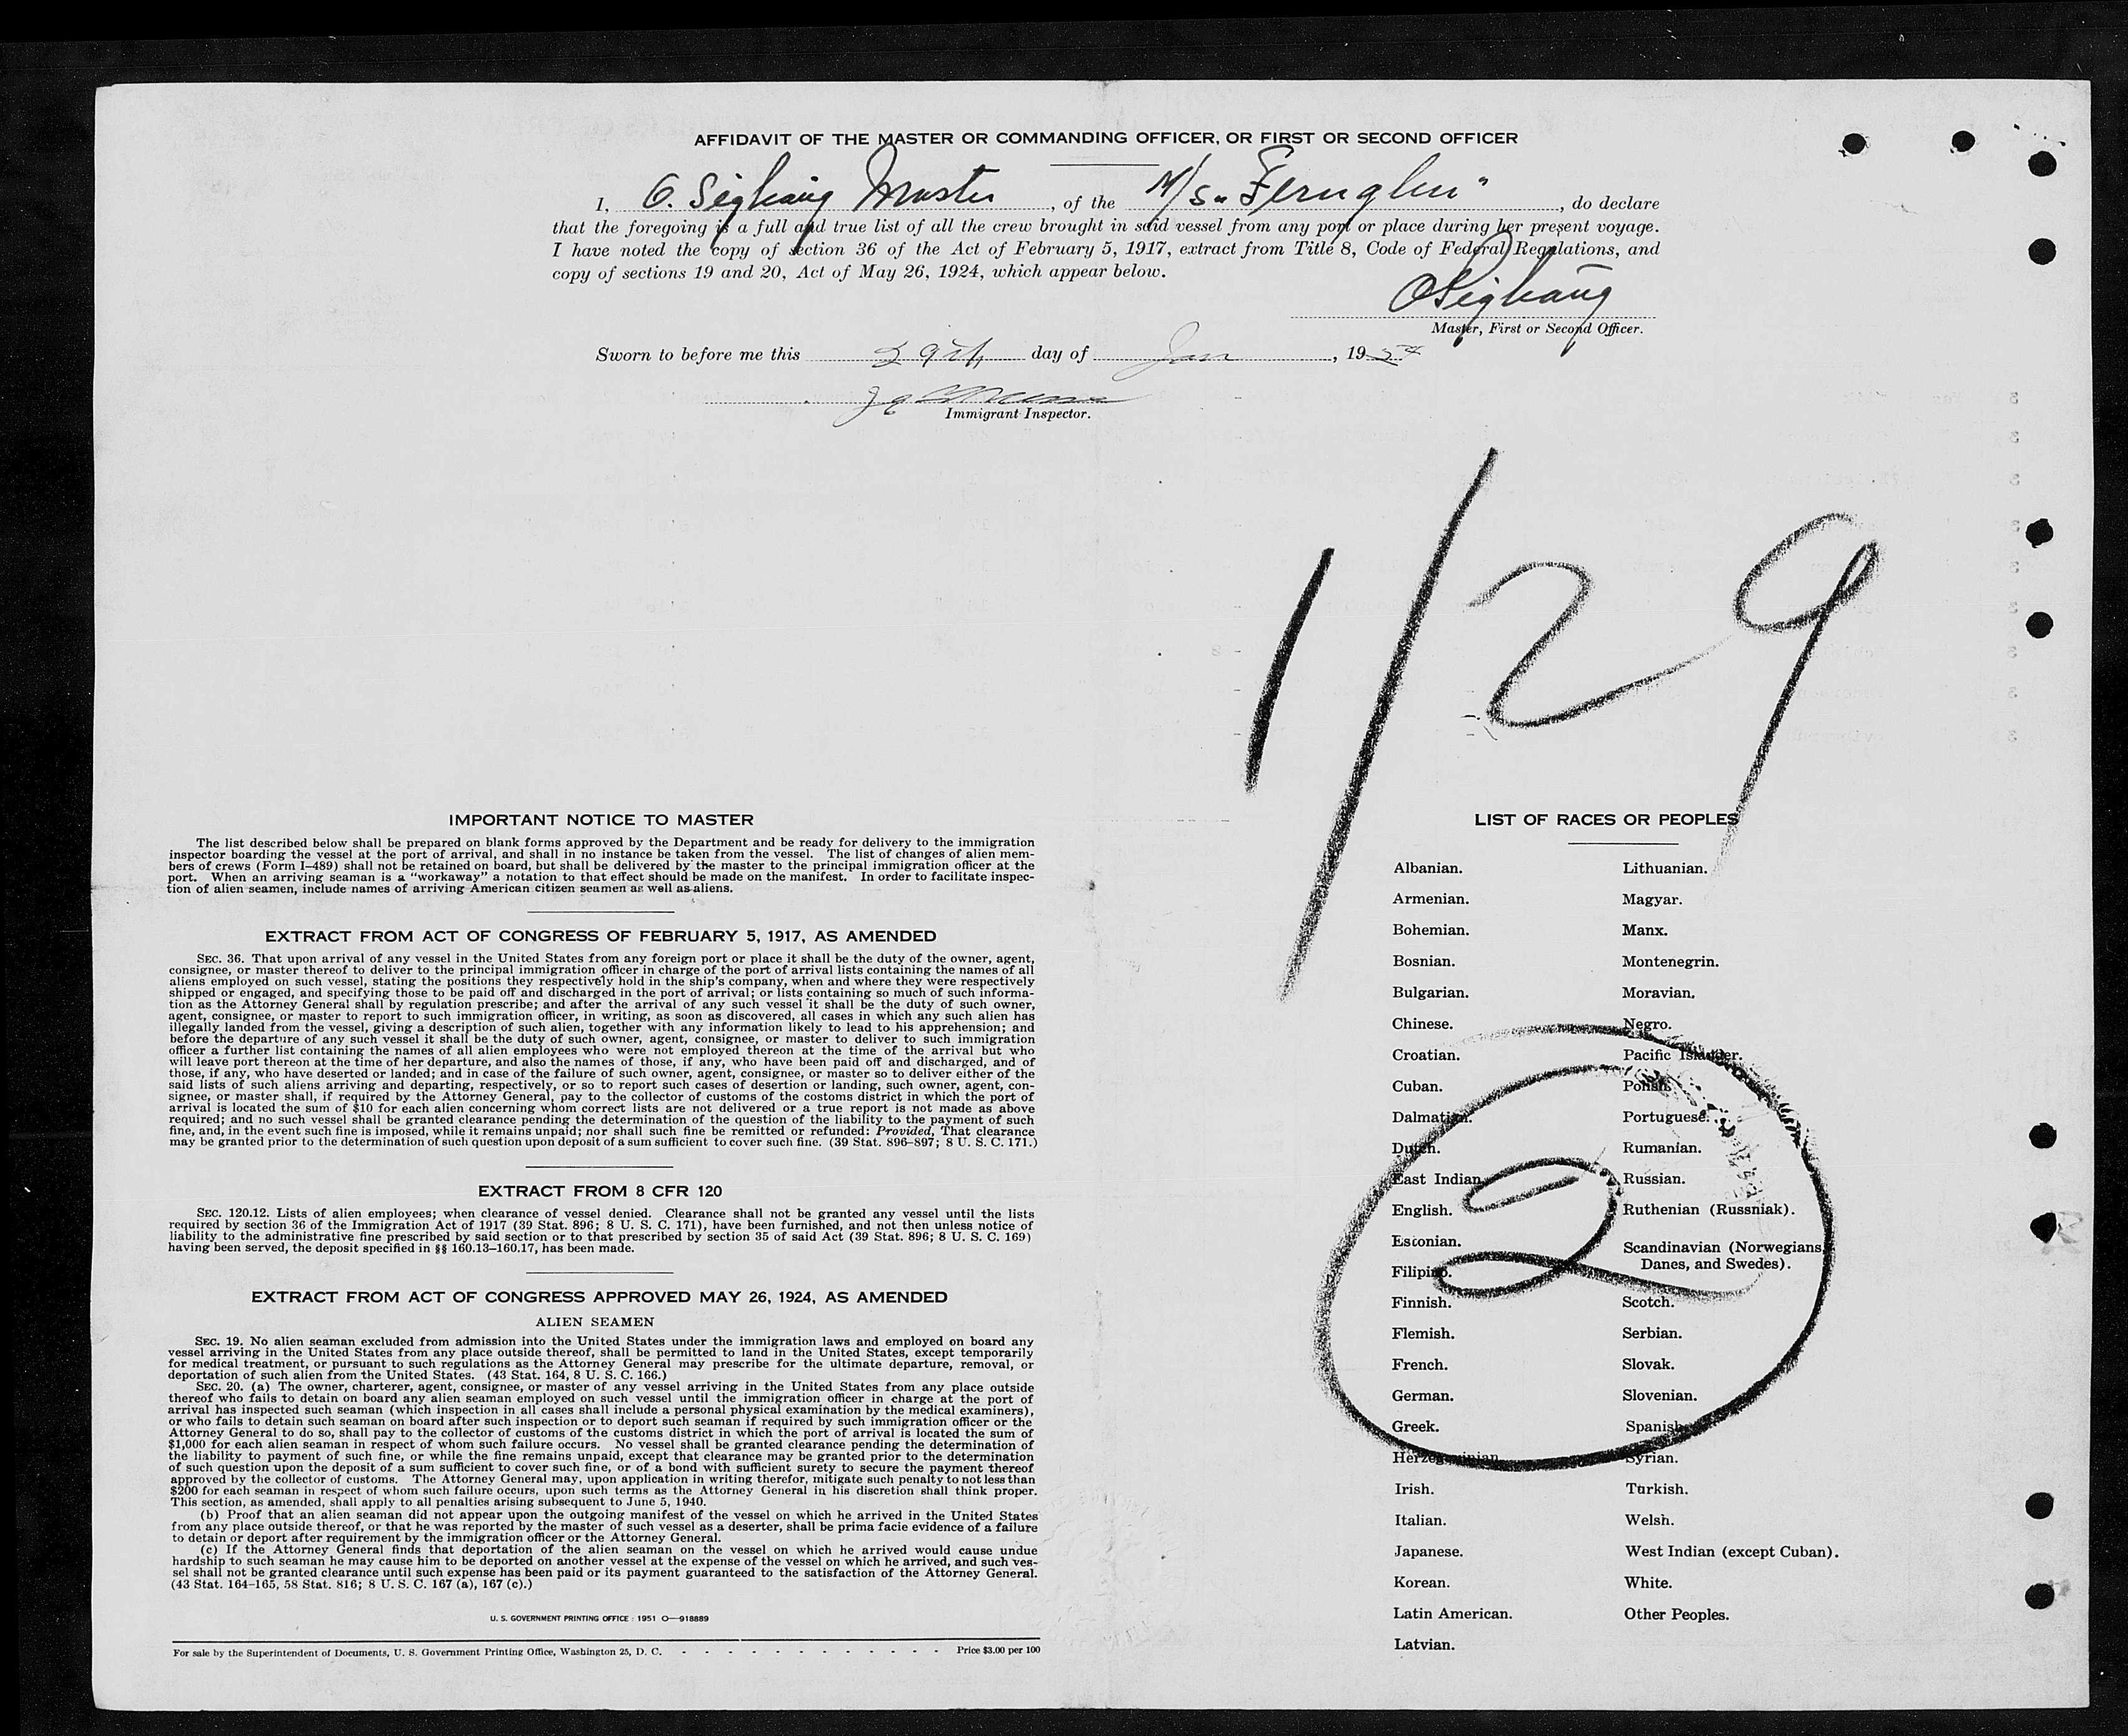 AFFIDAVIT OF THE MASTER OR COMMANDING OFFICER, OR FIRST OR SECOND OFFICER
I, O. Sighaug Master, of the M/S "Fernglen", do declare
that the foregoing is a full and true list of all the crew brought in said vessel from any port or place during her present voyage.
I have noted the copy of section 36 of the Act of February 5, 1917, extract from Title 8, Code of Federal Regulations, and
copy of sections 19 and 20, Act of May 26, 1924, which appear below.
OSighaug
Master, First or Second Officer.
Sworn to before me this 29th day of Jan, 1954
Immigrant Inspector.
1/29
IMPORTANT NOTICE TO MASTER
The list described below shall be prepared on blank forms approved by the Department and be ready for delivery to the immigration
inspector boarding the vessel at the port of arrival, and shall in no instance be taken from the vessel. The list of changes of alien mem-
bers of crews (Form I–489) shall not be retained on board, but shall be delivered by the master to the principal immigration officer at the
port. When an arriving seaman is a "workaway" a notation to that effect should be made on the manifest. In order to facilitate inspec-
tion of alien seamen, include names of arriving American citizen seamen as well as aliens.
EXTRACT FROM ACT OF CONGRESS OF FEBRUARY 5, 1917, AS AMENDED
SEC. 36. That upon arrival of any vessel in the United States from any foreign port or place it shall be the duty of the owner, agent,
consignee, or master thereof to deliver to the principal immigration officer in charge of the port of arrival lists containing the names of all
aliens employed on such vessel, stating the positions they respectively hold in the ship's company, when and where they were respectively
shipped or engaged, and specifying those to be paid off and discharged in the port of arrival; or lists containing so much of such informa-
tion as the Attorney General shall by regulation prescribe; and after the arrival of any such vessel it shall be the duty of such owner,
agent, consignee, or master to report to such immigration officer, in writing, as soon as discovered, all cases in which any such alien has
illegally landed from the vessel, giving a description of such alien, together with any information likely to lead to his apprehension; and
before the departure of any such vessel it shall be the duty of such owner, agent, consignee, or master to deliver to such immigration
officer a further list containing the names of all alien employees who were not employed thereon at the time of the arrival but who
will leave port thereon at the time of her departure, and also the names of those, if any, who have been paid off and discharged, and of
those, if any, who have deserted or landed; and in case of the failure of such owner, agent, consignee, or master so to deliver either of the
said lists of such aliens arriving and departing, respectively, or so to report such cases of desertion or landing, such owner, agent, con-
signee, or master shall, if required by the Attorney General, pay to the collector of customs of the costoms district in which the port of
arrival is located the sum of $10 for each alien concerning whom correct lists are not delivered or a true report is not made as above
required; and no such vessel shall be granted clearance pending the determination of the question of the liability to the payment of such
fine, and, in the event such fine is imposed, while it remains unpaid; nor shall such fine be remitted or refunded: Provided, That clearance
may be granted prior to the determination of such question upon deposit of a sum sufficient to cover such fine. (39 Stat. 896–897; 8 U. S. C. 171.)
EXTRACT FROM 8 CFR 120
SEC. 120.12. Lists of alien employees; when clearance of vessel denied. Clearance shall not be granted any vessel until the lists
required by section 36 of the Immigration Act of 1917 (39 Stat. 896; 8 U. S. C. 171), have been furnished, and not then unless notice of
liability to the administrative fine prescribed by said section or to that prescribed by section 35 of said Act (39 Stat. 896; 8 U. S. C. 169)
having been served, the deposit specified in §§ 160.13–160.17, has been made.
EXTRACT FROM ACT OF CONGRESS APPROVED MAY 26, 1924, AS AMENDED
ALIEN SEAMEN
SEC. 19. No alien seaman excluded from admission into the United States under the immigration laws and employed on board any
vessel arriving in the United States from any place outside thereof, shall be permitted to land in the United States, except temporarily
for medical treatment, or pursuant to such regulations as the Attorney General may prescribe for the ultimate departure, removal, or
deportation of such alien from the United States. (43 Stat. 164, 8 U. S. C. 166.)
SEC. 20. (a) The owner, charterer, agent, consignee, or master of any vessel arriving in the United States from any place outside
thereof who fails to detain on board any alien seaman employed on such vessel until the immigration officer in charge at the port of
arrival has inspected such seaman (which inspection in all cases shall include a personal physical examination by the medical examiners),
or who fails to detain such seaman on board after such inspection or to deport such seaman if required by such immigration officer or the
Attorney General to do so, shall pay to the collector of customs of the customs district in which the port of arrival is located the sum of
$1,000 for each alien seaman in respect of whom such failure occurs. No vessel shall be granted clearance pending the determination of
the liability to payment of such fine, or while the fine remains unpaid, except that clearance may be granted prior to the determination
of such question upon the deposit of a sum sufficient to cover such fine, or of a bond with sufficient surety to secure the payment thereof
approved by the collector of customs. The Attorney General may, upon application in writing therefor, mitigate such penalty to not less than
$200 for each seaman in respect of whom such failure occurs, upon such terms as the Attorney General in his discretion shall think proper.
This section, as amended, shall apply to all penalties arising subsequent to June 5, 1940.
(b) Proof that an alien seaman did not appear upon the outgoing manifest of the vessel on which he arrived in the United States
from any place outside thereof, or that he was reported by the master of such vessel as a deserter, shall be prima facie evidence of a failure
to detain or deport after requirement by the immigration officer or the Attorney General.
(c) If the Attorney General finds that deportation of the alien seaman on the vessel on which he arrived would cause undue
hardship to such seaman he may cause him to be deported on another vessel at the expense of the vessel on which he arrived, and such ves-
sel shall not be granted clearance until such expense has been paid or its payment guaranteed to the satisfaction of the Attorney General.
(43 Stat. 164–165, 58 Stat. 816; 8 U. S. C. 167 (a), 167 (c).)
U. S. GOVERNMENT PRINTING OFFICE : 1951 O—918889
For sale by the Superintendent of Documents, U. S. Government Printing Office, Washington 25, D. C. - - - - - - - - - - - - Price $3.00 per 100
LIST OF RACES OR PEOPLES
Albanian.
Armenian.
Bohemian.
Bosnian.
Bulgarian.
Chinese.
Croatian.
Cuban.
Dalmatian.
Dutch.
East Indian.
English.
Estonian.
Filipino.
Finnish.
Flemish.
French.
German.
Greek.
Herzegovinian.
Irish.
Italian.
Japanese.
Korean.
Latin American.
Latvian.
Lithuanian.
Magyar.
Manx.
Montenegrin.
Moravian.
Negro.
Pacific Islander.
Polish.
Portuguese.
Rumanian.
Russian.
Ruthenian (Russniak).
Scandinavian (Norwegians,
Danes, and Swedes).
Scotch.
Serbian.
Slovak.
Slovenian.
Spanish.
Syrian.
Turkish.
Welsh.
West Indian (except Cuban).
White.
Other Peoples.
2